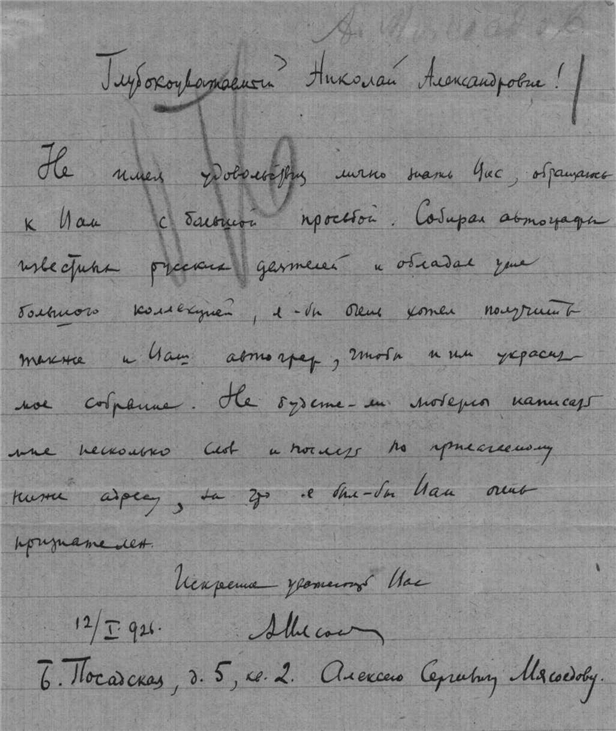 А. Мясоедов
Глубокоуважаемый Николай Александрович!
Не имея удовольствия лично знать Вас, обращаюсь
к Вам с большой просьбой. Собирая автографы
известных русских деятелей и обладая уже
большого коллекцией, я-бы очень хотел получить
также и Ваш автограф, чтобы и им украсить
мое собрание. Не будете-ли любезны написать
мне несколько слов и послать по прилагаемому
ниже адресу, за что я был-бы Вам очень
признателен.
Искренно уважающий Вас
12/I 926. АМясоед
Б. Посадская, д. 5, кв. 2. Алексею Сергеевичу Мясоедову.